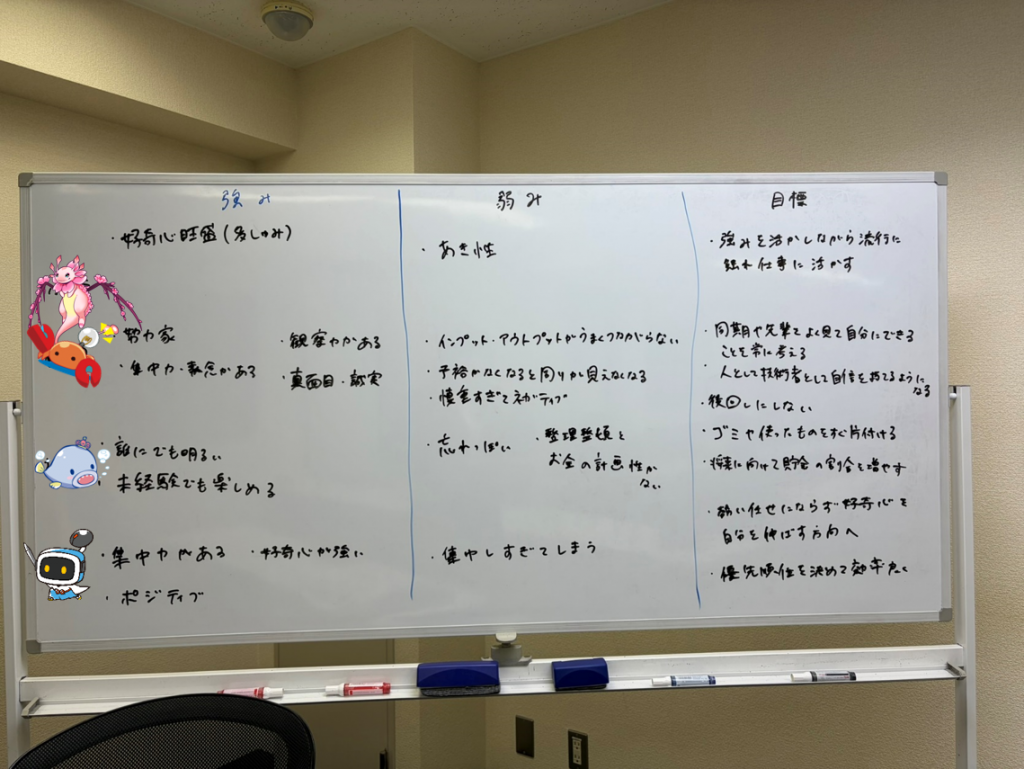 強み
・好奇心旺盛(多しゅみ)
・努力家
・観察力がある
・集中力・執念がある
・真面目・誠実
・誰にでも明るい
・未経験でも楽しめる
・集中力がある
・好奇心が強い
・ポジティブ
弱み
・あき性
・インプット・アウトプットがうまくつながらない
・予裕がなくなると周りが見えなくなる
・慎重すぎてネガティブ
・忘れっぽい
・整理整頓と
お金の計画性が
ない
・集中しすぎてしまう
目標
・強みを活かしながら流行に
触れ仕事に活かす
・同期や先輩をよく見て自分にできる
ことを常に考える
・人として技術者として自信を持てるように
なる
・後回しにしない
・ゴミや使ったものをすぐ片付ける
・将来に向けて貯金の割合を増やす
・勢い任せにならず好奇心を
自分を伸ばす方向へ
・優先順位を決めて効率よく